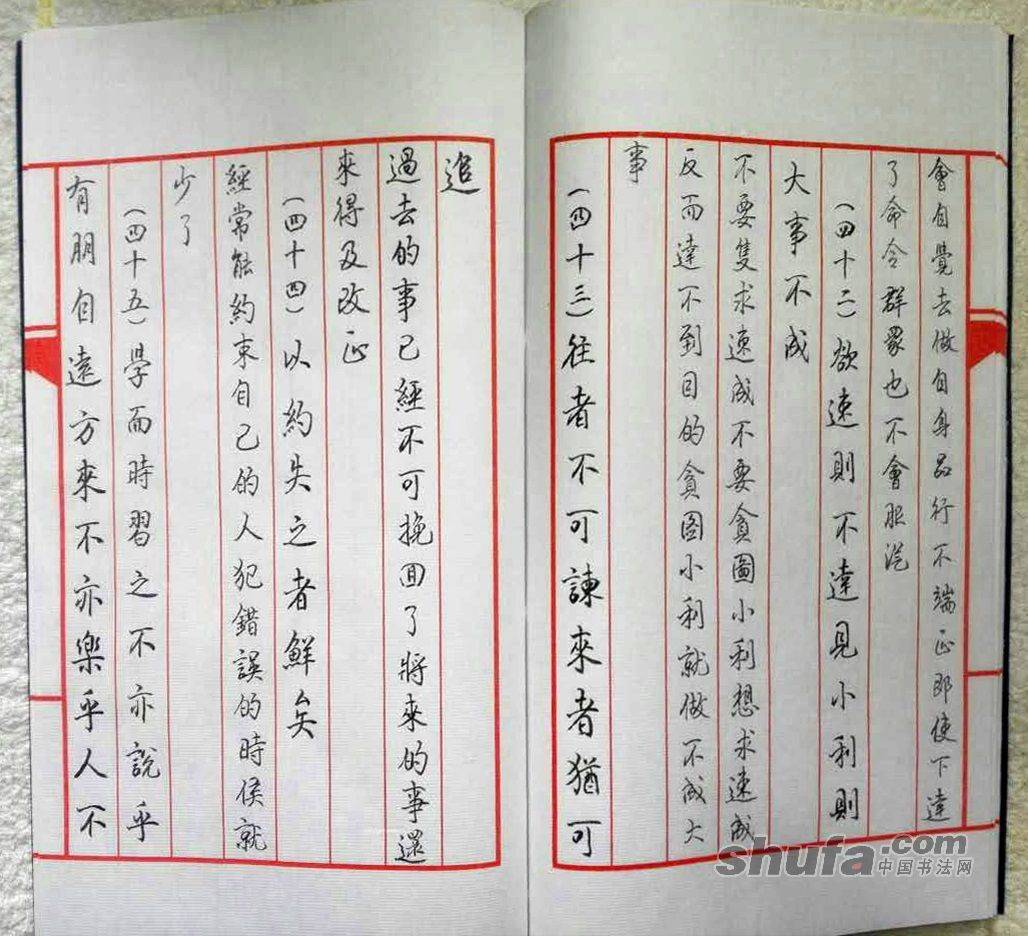 會自覺去做自身品行不端正即使下達
了命令群眾也不會服從
（四十二）欲速則不達見小利則
大事不成
不要隻求速成不要貪圖小利想求速成
反而達不到目的貪图小利就做不成大
事
（四十三）往者不可諫來者猶可
追
過去的事已經不可挽回了將來的事還
來得及改正
（四十四）以約失之者鮮矣
經常能約束自己的人犯錯誤的時侯就
少了
（四十五）學而時習之不亦說乎
有朋自遠方來不亦樂乎人不
shufa.com
中国书法网